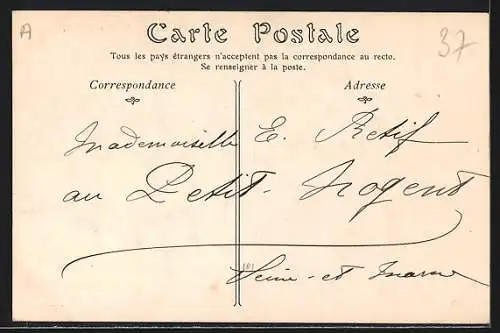 A
37
Carte Postale
Tous les pays étrangers n'acceptent pas la correspondance au recto.
Se renseigner à la poste.
Correspondance
Adresse
Mademoiselle E. Retif
au Petit-Nogent
101
Seine-et Marne